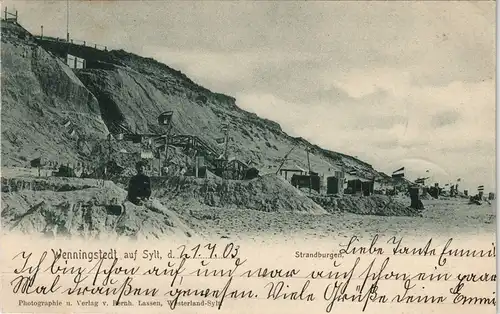 Wenningstedt auf Sylt, d. 21.7.03
Strandburgen.
Liebe Tante Emmi
Ich bin schon auf und war auch schon ein paar
Mal draußen gewesen. Viele Grüße deine Emmi
Photographie u. Verlag v. Bernh. Lassen, Westerland-Sylt